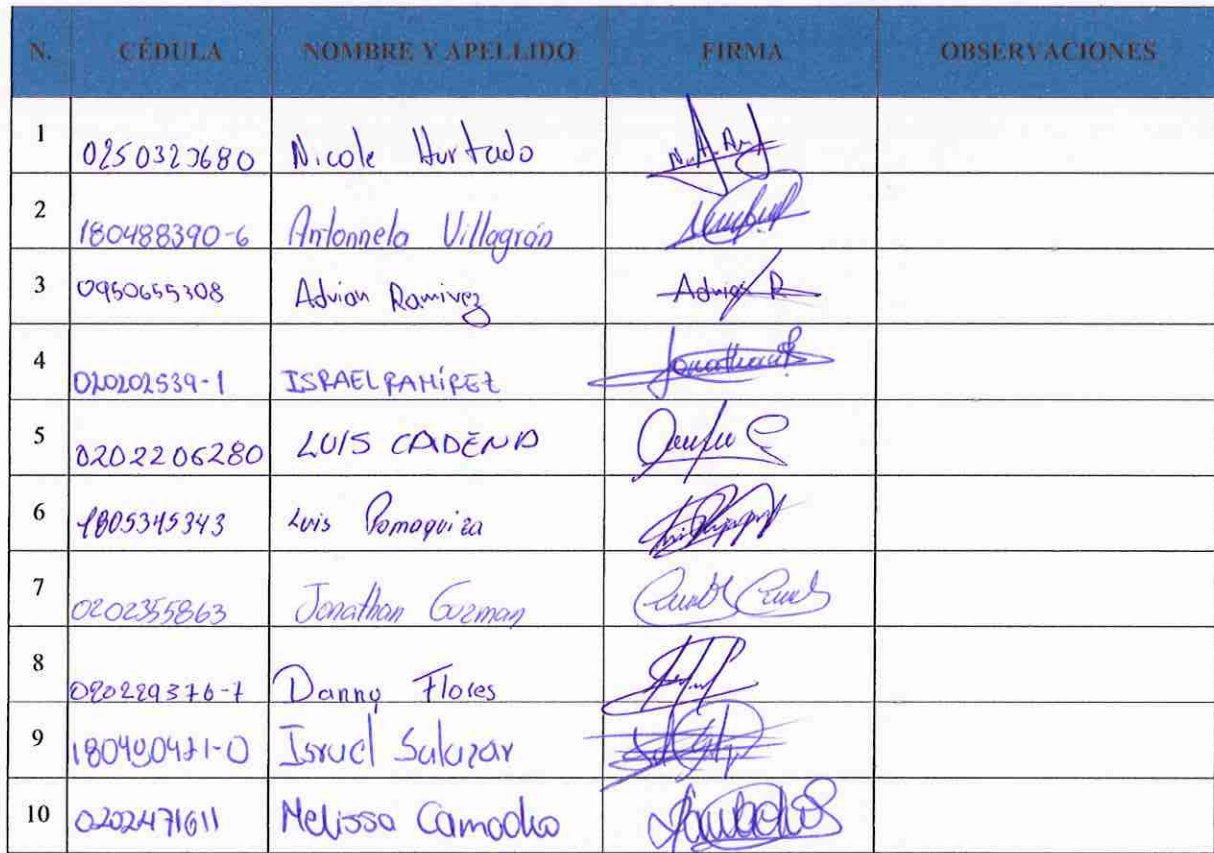 N. CÉDULA NOMBRE Y APELLIDO FIRMA OBSERVACIONES
1 Nicole Hurtado
2 180488390-6 Antonnela Villagrán
3 0950655308 Adrian Ramirez Adrian R
4 020202539-1 ISRAEL RAMÍREZ Jonathan
5 0202206280 LUIS CADENA
6 1805345343 Luis Pomaquiza
7 0202355863 Jonathan Guzman
8 020229376-7 Danny Flores
9 Israel Salazar
10 0202471611 Melissa Camacho